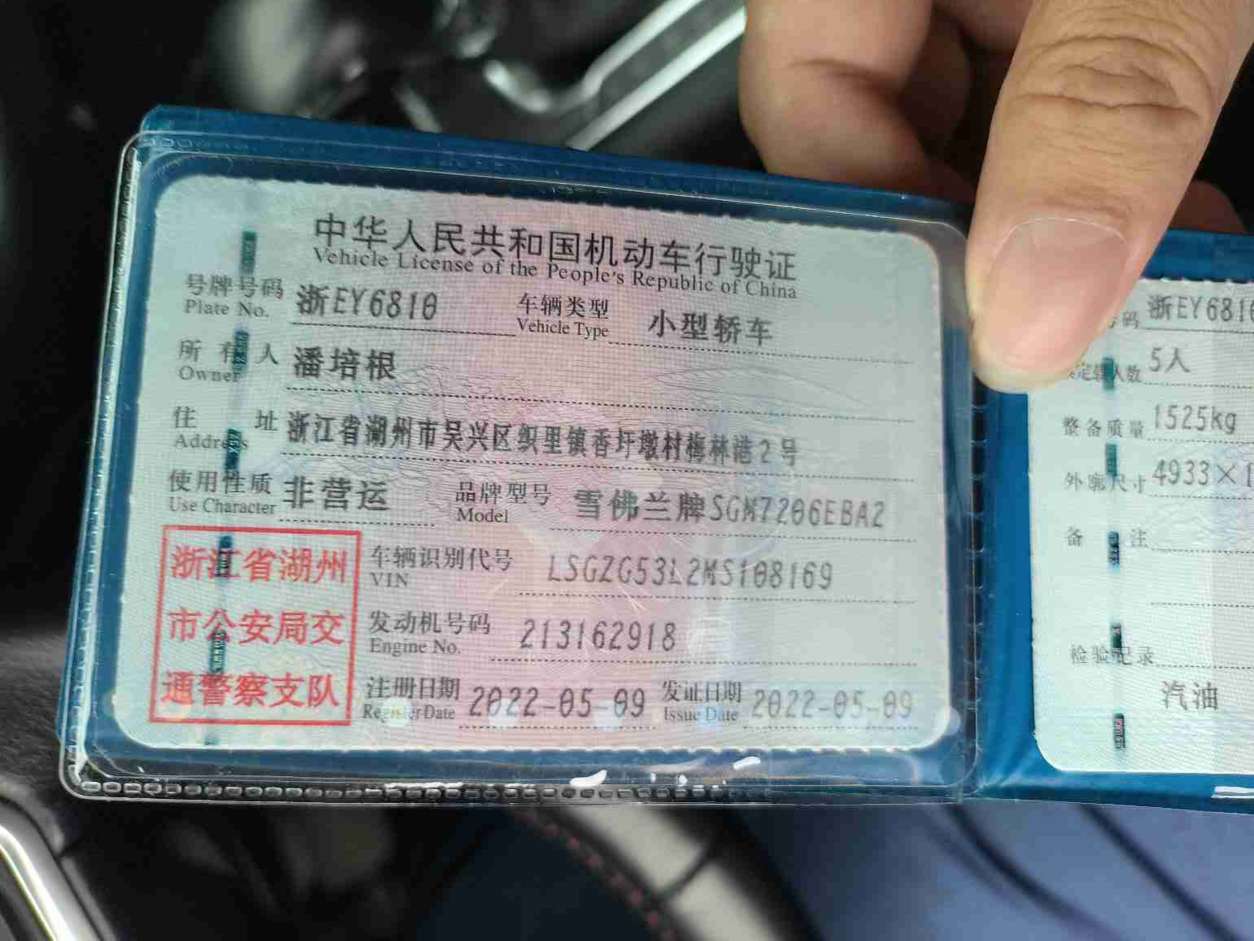 中华人民共和国机动车行驶证
Vehicle License of the People's Republic of China
号牌号码 浙EY6810 车辆类型 小型轿车
Plate No. Vehicle Type
所有人 潘培根
Owner
住址 浙江省湖州市吴兴区织里镇香圩墩村梅林港2号
Address
使用性质 非营运 品牌型号 雪佛兰牌SGM7206EBA2
Use Character Model
浙江省湖州
市公安局交
通警察支队
车辆识别代号 LSGZG53L2MS108169
VIN
发动机号码 213162918
Engine No.
注册日期 2022-05-09 发证日期 2022-05-09
Register Date Issue Date
码 浙EY681
定载人数 5人
整备质量 1525kg
外廓尺寸 4933×1
备注
检验记录
汽油